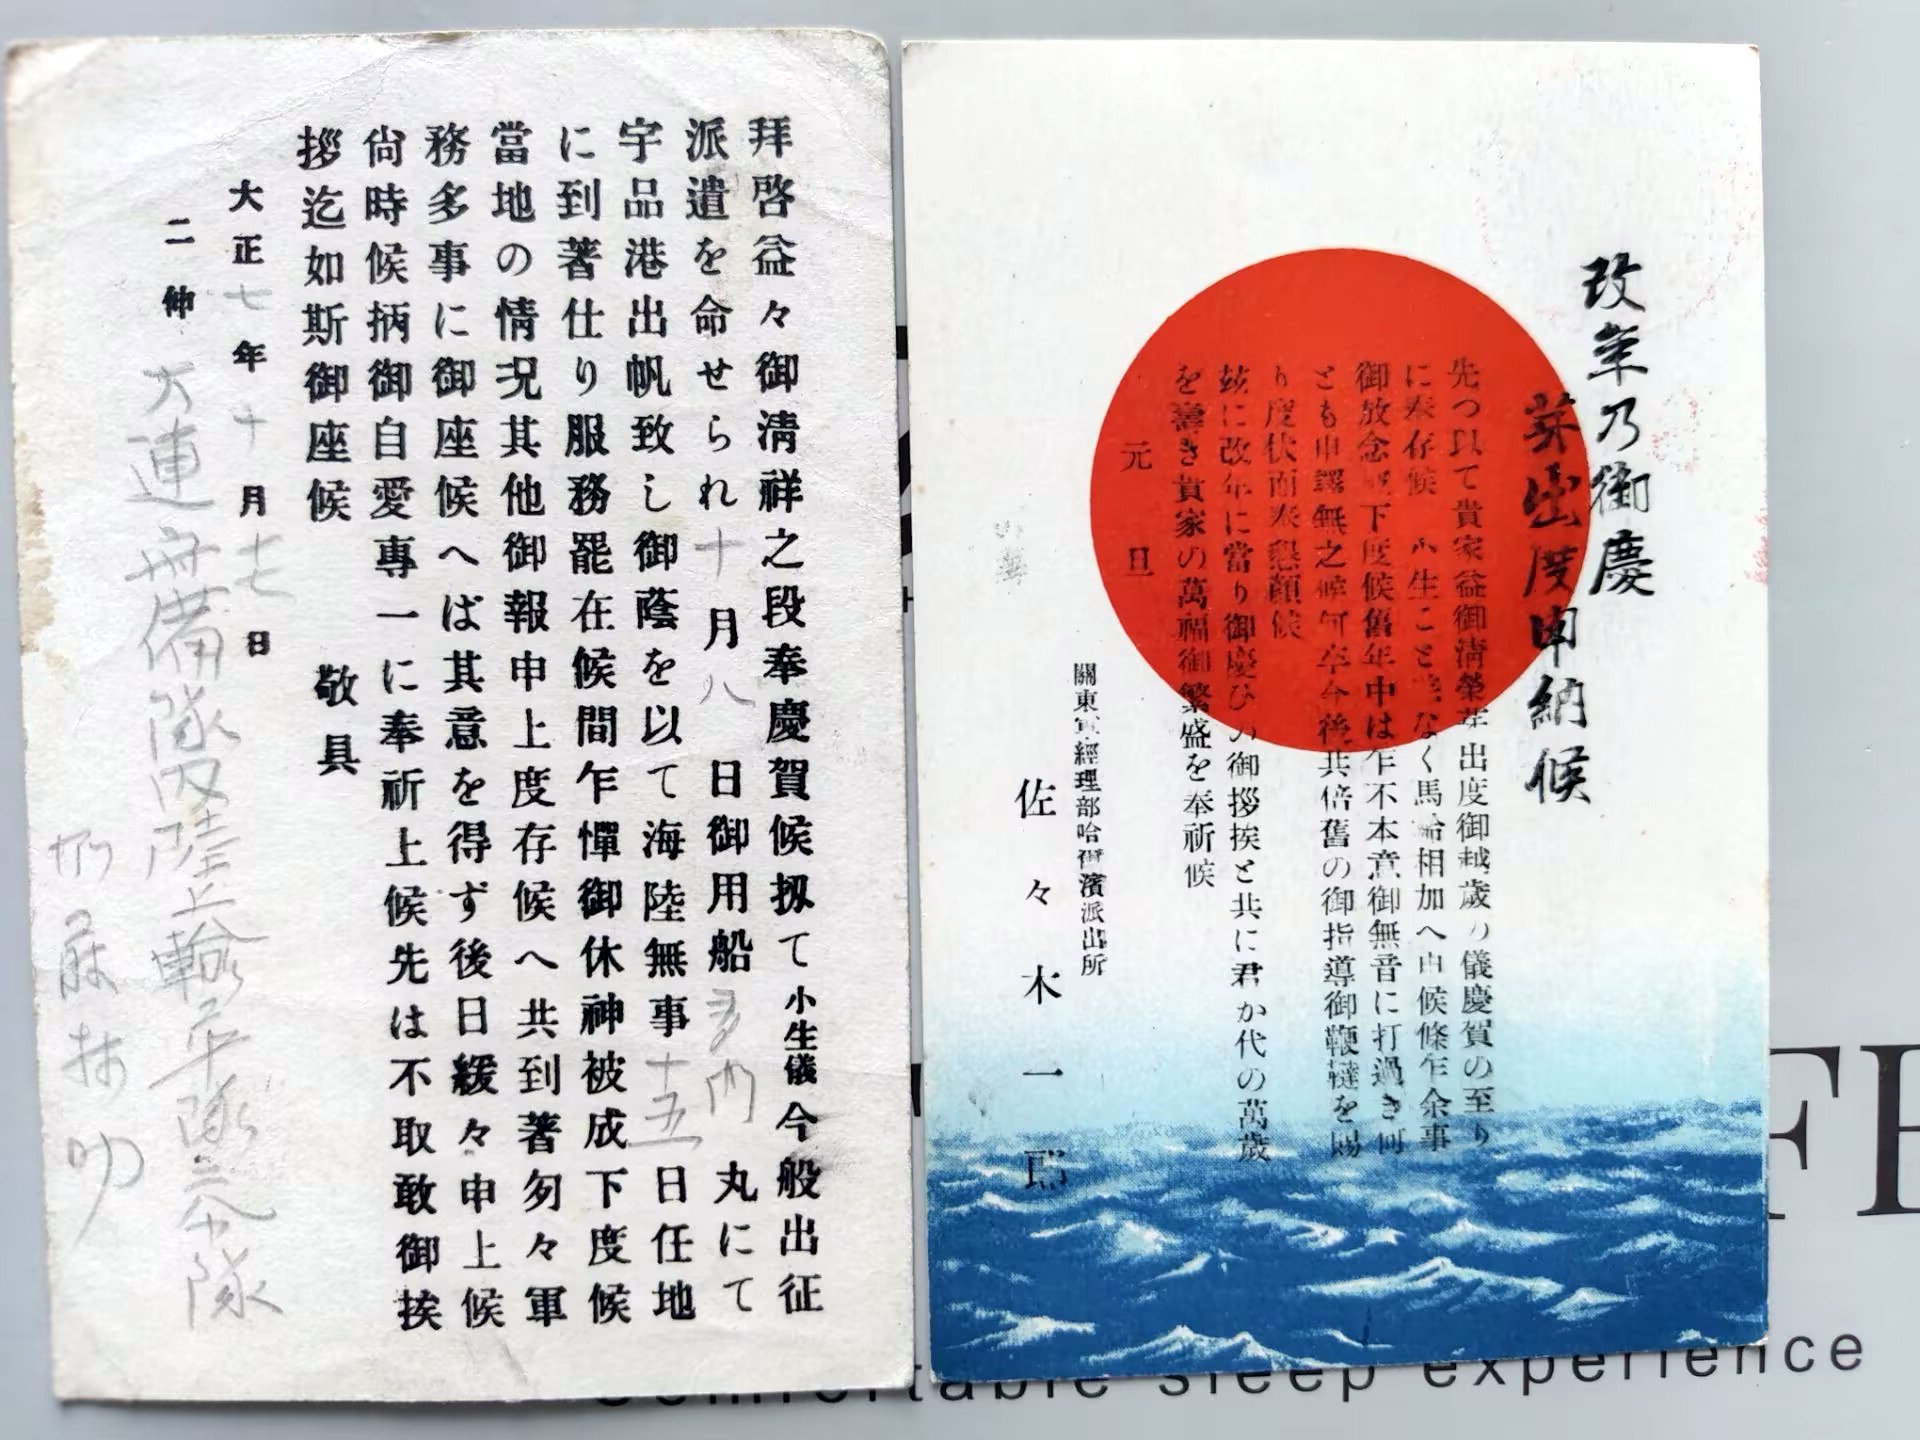 拜啓益々御淸祥之段奉慶賀候扨て小生儀今般出征
派遣を命せられ十月八日御用船多門丸にて
宇品港出帆致し御蔭を以て海陸無事十五日任地
に到著仕り服務罷在候間乍憚御休神被成下度候
當地の情況其他御報申上度存候へ共到著匆々軍
務多事に御座候へば其意を得ず後日緩々申上候
尙時候柄御自愛專一に奉祈上候先は不取敢御挨
拶迄如斯御座候 敬具
大正七年十月十七日
二伸 大連守備隊 陸上輸卒隊 分隊
改年乃御慶
芽出度申納候
先つ以て貴家益御淸榮芽出度御越歲の儀慶賀の至り
に奉存候 小生こと なく馬齢相加へ申候條乍余事
御放念 下度候舊年中は乍不本意御無音に打過き何
とも申譯無之候何卒今後共倍舊の御指導御鞭韃を賜
り度伏而奉懇願候
玆に改年に當り御慶ひの御挨拶と共に君か代の萬歲
を壽き貴家の萬福御繁盛を奉祈候
元旦
關東軍經理部哈爾濱派出所
佐々木一郎
FE
comfortable sleep experience